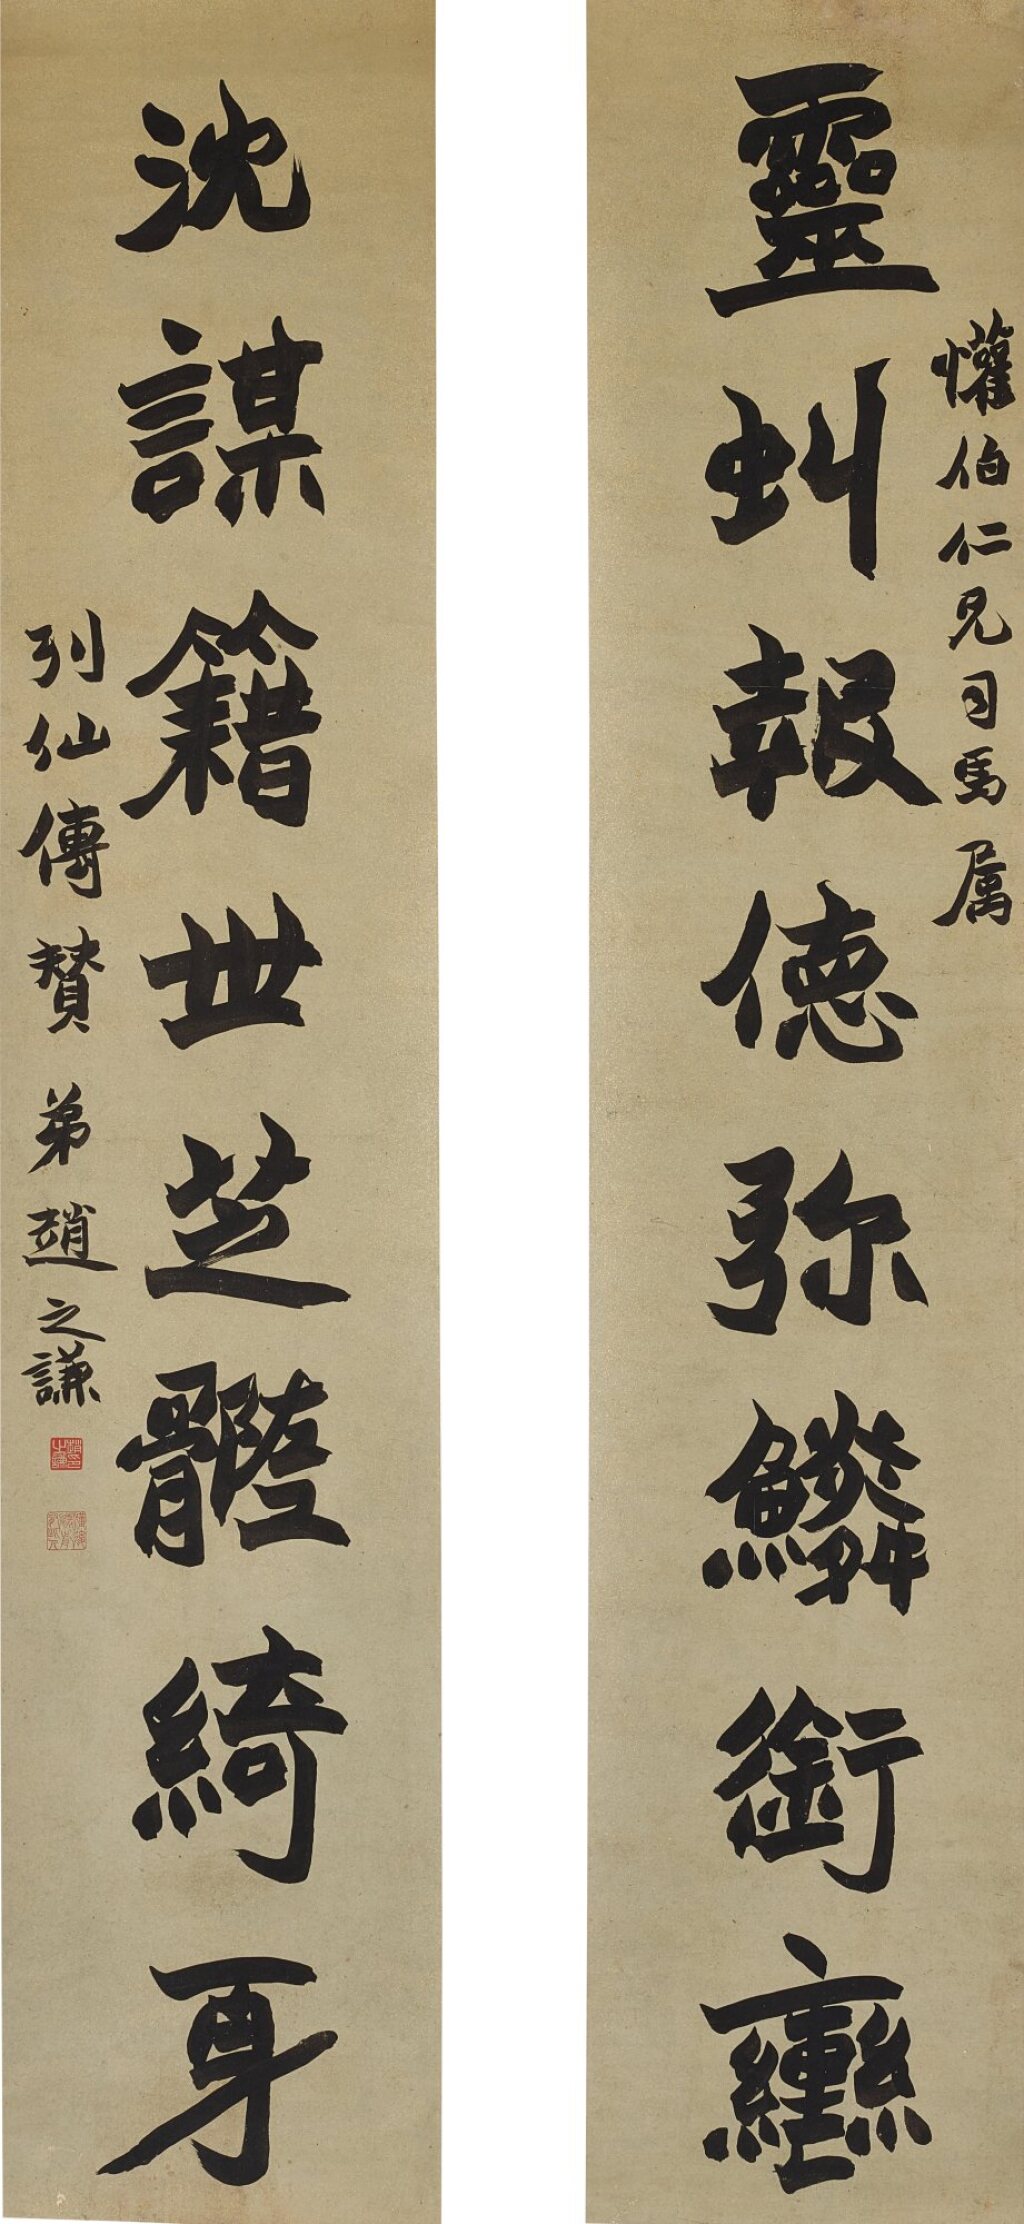 靈虯報德弥鱗銜轡
懽伯仁兄司馬属
沈謀籍世芝髓綺身
列仙傳贊 弟趙之謙